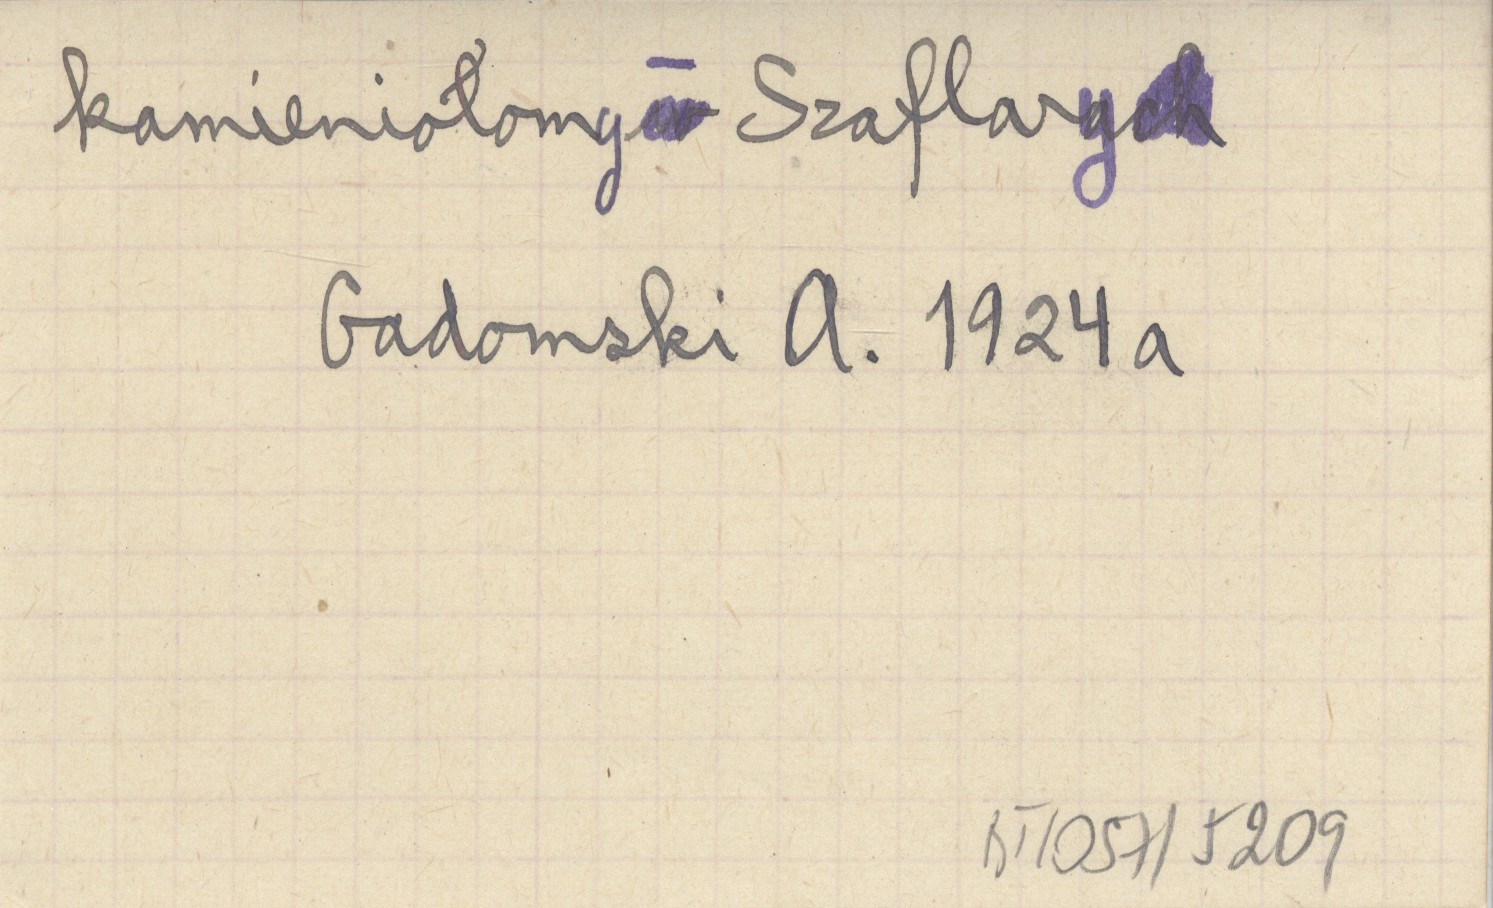 kamieniołomy - Szaflary
Gadomski A. 1924a
BT/057/5209